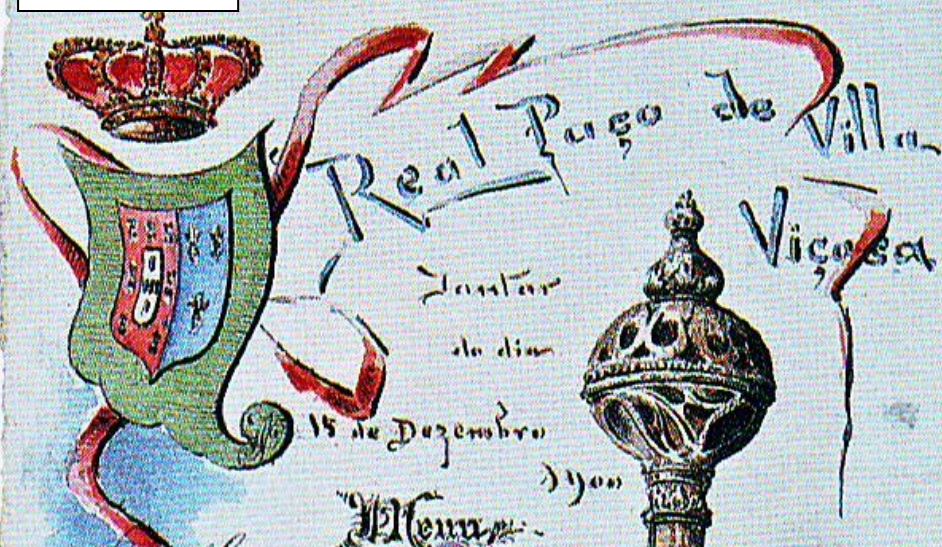 Real Paço de Villa
Viçosa
Jantar
do dia
15 de Dezembro
1900
Menu